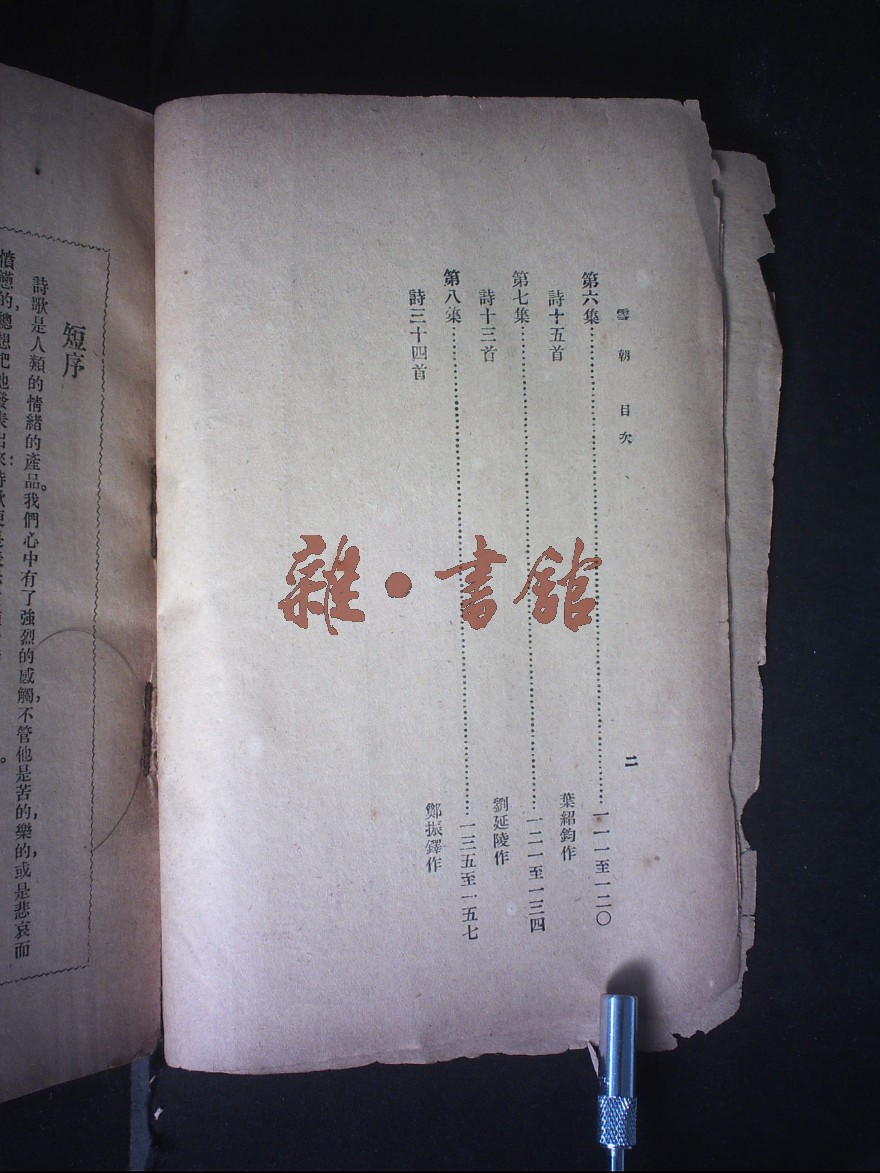 雪朝 目次
二
第六集……一一一至一二〇
詩十五首
葉紹鈞作
第七集……一二一至一三四
詩十三首
劉延陵作
第八集……一三五至一五七
詩三十四首
鄭振鐸作
短序
詩歌是人類的情緒的產品。我們心中有了強烈的感觸，不管他是苦的，樂的，或是悲哀而
憤懣的，總想把他發表出來：
雜·書館